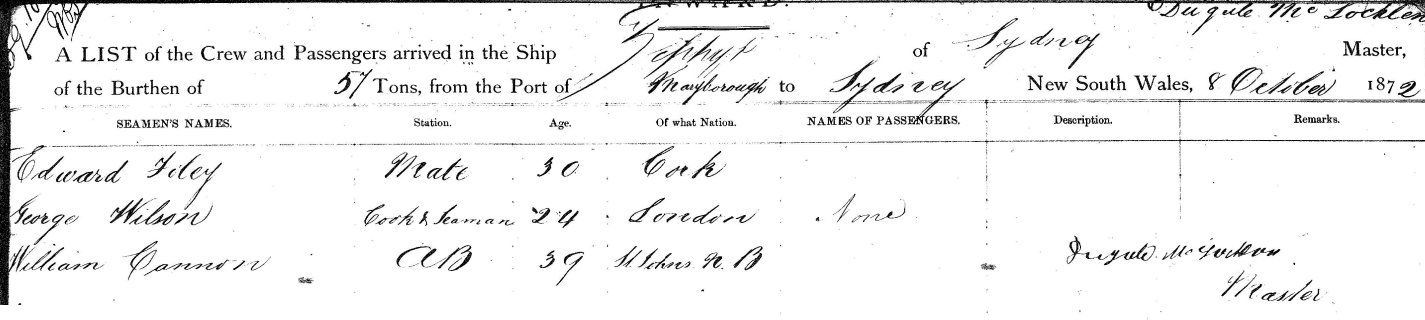 INWARD.
Dugule Mc Locklen
A LIST of the Crew and Passengers arrived in the Ship Zephyr of Sydney Master,
of the Burthen of 57 Tons, from the Port of Maryborough to Sydney New South Wales, 8 October 1872
SEAMEN'S NAMES. Station. Age. Of what Nation. NAMES OF PASSENGERS. Description. Remarks.
Edward Filey Mate 30 Cork
George Wilson Cook & Seaman 24 London None
William Cannon AB 39 St Johns N. B
Dugule Mc Locklen
Master